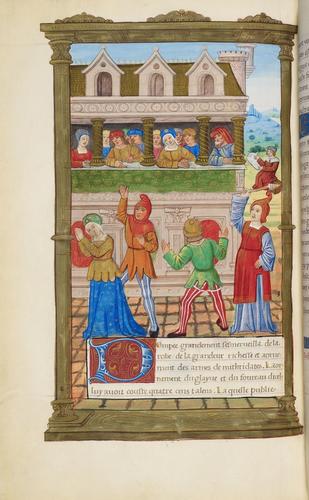 Pompee grandement s'esmerueilla de la
robe de la grandeur richesse et aorne
ment des armes de mithridates. L aor
nement du glayue et du foureau du
luy auoit couste quatre cens talens. La quelle publie